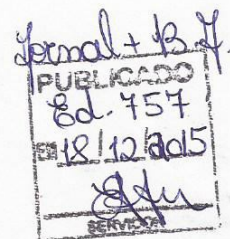 Jornal + B.J.
PUBLICADO
Ed. 757
18/12/2015
SERVIDOR